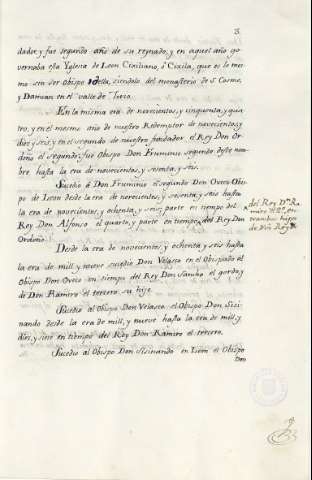 3
dador, y fue segundo año de su reynado, y en aquel año go
vernaba esta Yglesia de Leon Cixiliano, ó Cixila, que es lo mes
mo sera ser Obispo della, siendolo del monasterio de S. Cosme,
y Damian en el valle de Turio.
En la misma era de novecientos, y cinquenta, y qua
tro, y en el mesmo año de nuestro Redemptor de novecientos, y
diez, y seis, y en el segundo de nuestro fundador el Rey Don Or
doño el segundo, fue Obispo Don Fruminio segundo deste nom
bre hasta la era de novecientos, y setenta, y seis.
Sucedio á Don Fruminio el segundo Don Oveco Obis
po de Leon desde la era de novecientos, y setenta, y seis hasta
la era de novecientos, y ochenta, y seis, parte en tiempo del
Rey Don Alfonso el quarto, y parte en tiempo del Rey Don
Ordoño.
del Rey Dn. Ra
miro
de
Desde la era de novecientos, y ochenta, y seis hasta
la era de mill, y nueve sucedio Don Velasco en el Obispado al
Obispo Don Oveco en tiempo del Rey Don Sancho el gordo, y
de Don Ramiro el tercero su hijo.
Sucedio al Obispo Don Velasco el Obispo Don Sisi
nando desde la era de mill, y nueve hasta la era de mill, y
diez, y siete en tiempo del Rey Don Ramiro el tercero.
Sucedio al Obispo Don Sisinando en Leon el Obispo
Don